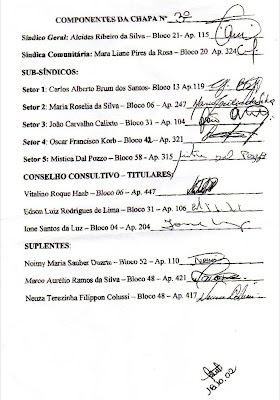 COMPONENTES DA CHAPA Nº 3º
Síndico Geral: Alcides Ribeiro da Silva – Bloco 21- Ap. 115
Síndica Comunitária: Mara Liane Pires da Rosa – Bloco 20 Ap. 324
SUB-SÍNDICOS:
Setor 1: Carlos Alberto Brum dos Santos- Bloco 13 Ap.119
Setor 2: Maria Roselia da Silva – Bloco 06 – Ap. 247
Setor 3: João Carvalho Calixto – Bloco 31 – Ap. 104
Setor 4: Oscar Francisco Korb – Bloco 42 – Ap. 321
Setor 5: Mística Dal Pozzo – Bloco 58 – Ap. 315
CONSELHO CONSULTIVO – TITULARES:
Vitalino Roque Haab – Bloco 06 – Ap. 447
Edson Luiz Rodrigues de Lima – Bloco 31 – Ap. 106
Ione Santos da Luz – Bloco 04 – Ap. 204
SUPLENTES:
Noimy Maria Sauber Duarte – Bloco 52 – Ap. 110
Marco Aurélio Ramos da Silva – Bloco 48 – Ap. 421
Neuza Terezinha Filippon Colussi – Bloco 48 – Ap. 417
18.10.02